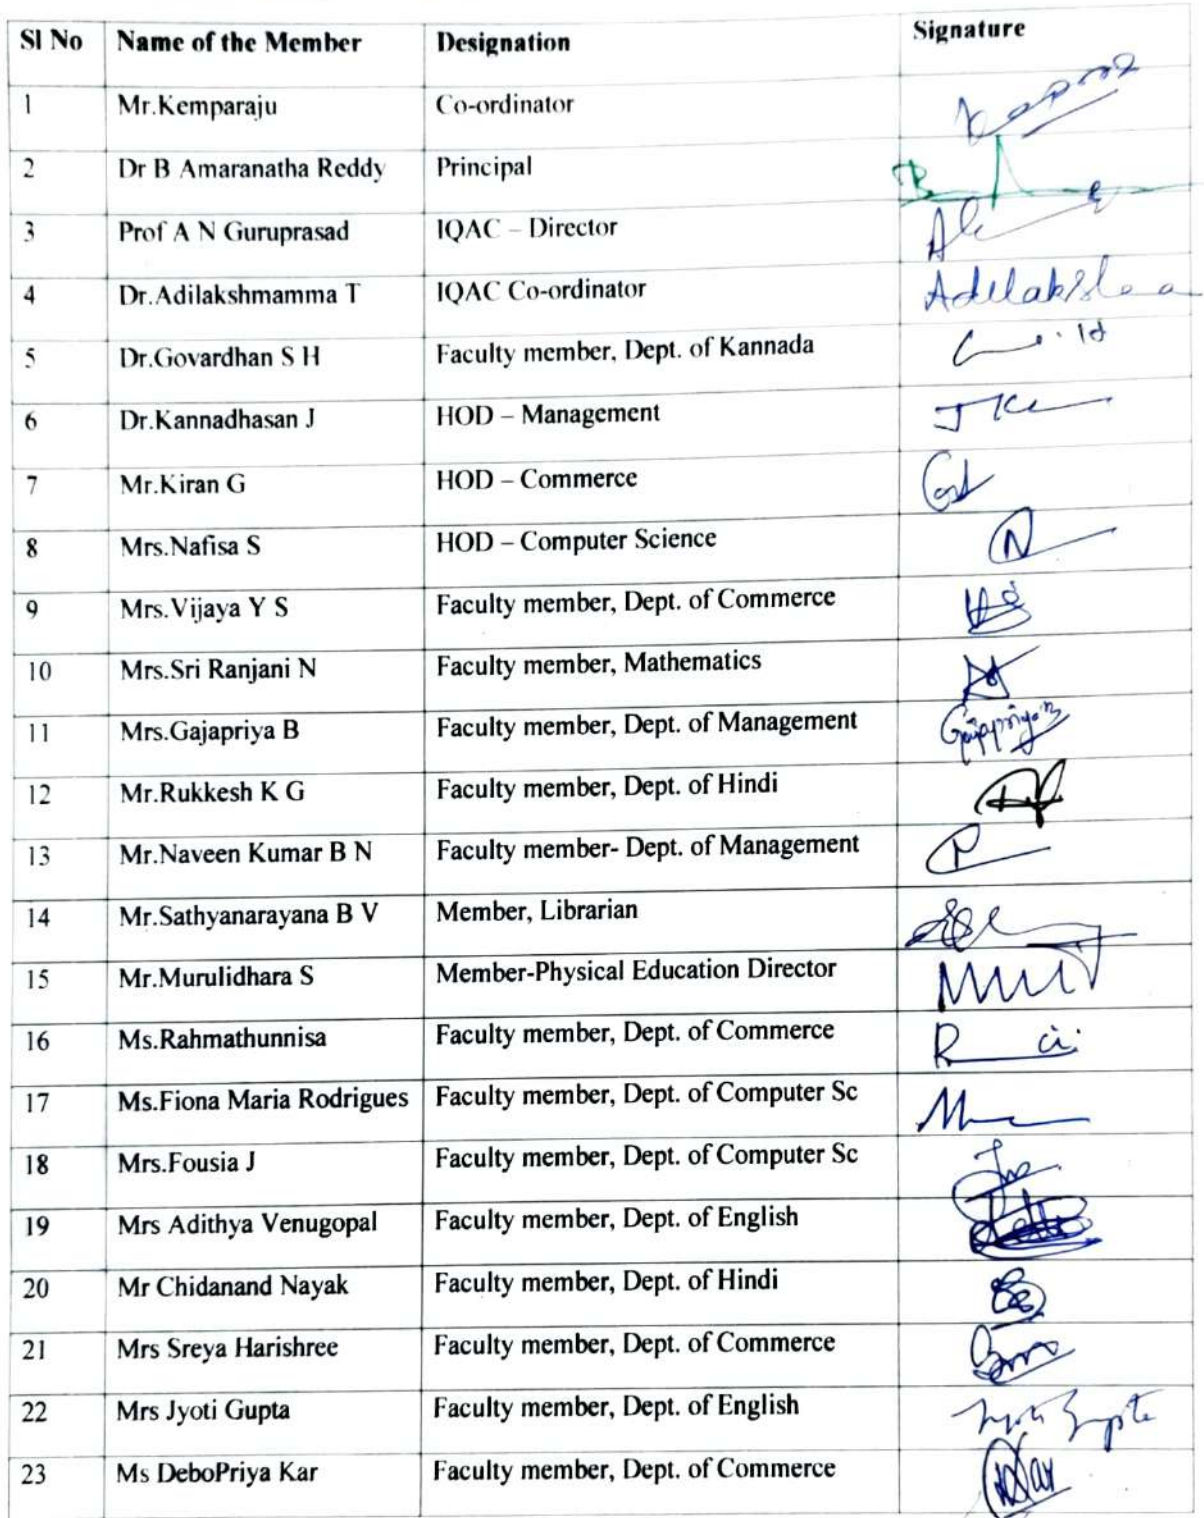 Sl No Name of the Member Designation Signature
1 Mr.Kemparaju Co-ordinator
2 Dr B Amaranatha Reddy Principal
3 Prof A N Guruprasad IQAC – Director
4 Dr.Adilakshmamma T IQAC Co-ordinator
5 Dr.Govardhan S H Faculty member, Dept. of Kannada
6 Dr.Kannadhasan J HOD – Management
7 Mr.Kiran G HOD – Commerce
8 Mrs.Nafisa S HOD – Computer Science
9 Mrs.Vijaya Y S Faculty member, Dept. of Commerce
10 Mrs.Sri Ranjani N Faculty member, Mathematics
11 Mrs.Gajapriya B Faculty member, Dept. of Management
12 Mr.Rukkesh K G Faculty member, Dept. of Hindi
13 Mr.Naveen Kumar B N Faculty member- Dept. of Management
14 Mr.Sathyanarayana B V Member, Librarian
15 Mr.Murulidhara S Member-Physical Education Director
16 Ms.Rahmathunnisa Faculty member, Dept. of Commerce
17 Ms.Fiona Maria Rodrigues Faculty member, Dept. of Computer Sc
18 Mrs.Fousia J Faculty member, Dept. of Computer Sc
19 Mrs Adithya Venugopal Faculty member, Dept. of English
20 Mr Chidanand Nayak Faculty member, Dept. of Hindi
21 Mrs Sreya Harishree Faculty member, Dept. of Commerce
22 Mrs Jyoti Gupta Faculty member, Dept. of English
23 Ms DeboPriya Kar Faculty member, Dept. of Commerce